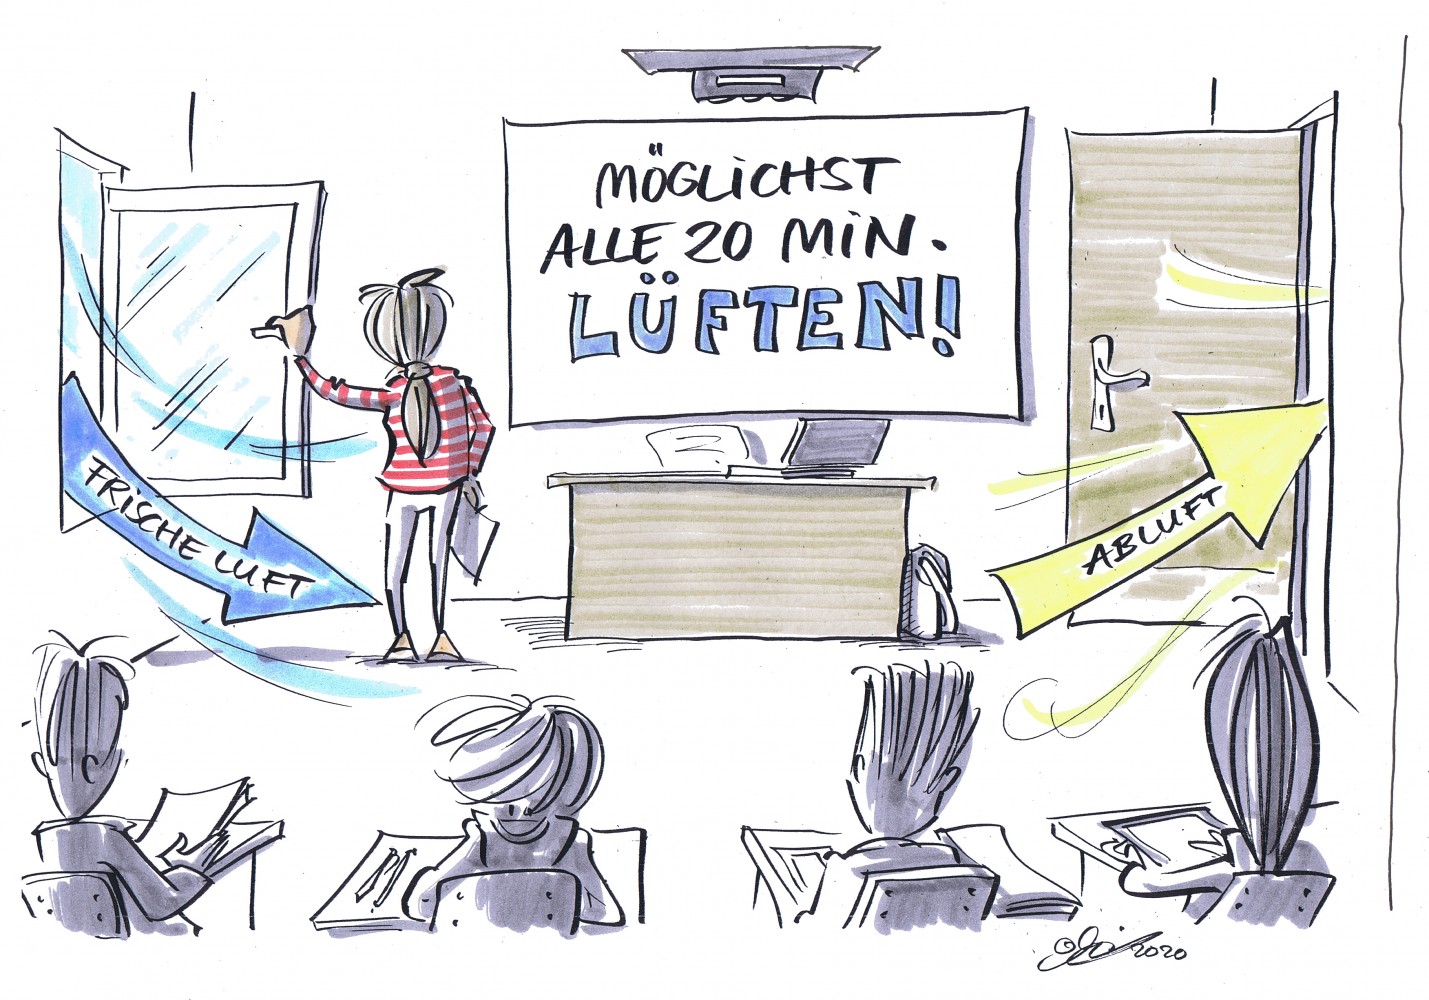 MÖGLICHST
ALLE 20 MIN.
LÜFTEN!
FRISCHE LUFT
ABLUFT
2020